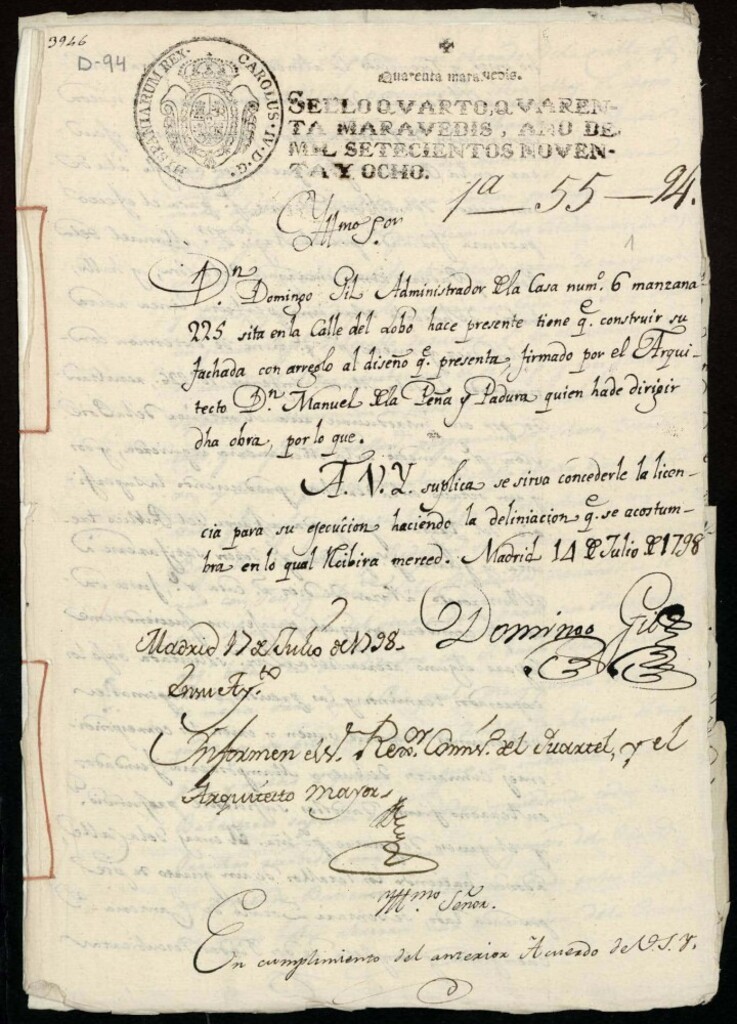 3946
D-94
HISPANIARUM REX. CAROLUS. IV. D. G.
Quarenta maravedis.
SELLO QVARTO, QVAREN-
TA MARAVEDIS, AÑO DE
MIL SETECIENTOS NOVEN-
TA Y OCHO.
1ª — 55 — 94.
1
Yllmo Sor
Dn Domingo Gil Administrador dla Casa numº. 6 manzana
225 sita en la Calle del Lobo hace presente tiene qe. construir su
fachada con arreglo al diseño qe. presenta, firmado por el Arqui-
tecto Dn. Manuel dla Peña y Padura quien hade dirigir
dha obra, por lo que.
A. V. Y. suplica se sirva concederle la licen-
cia para su ejecucion haciendo la deliniacion qe. se acostum-
bra en lo qual Rcibira merced. Madrid 14 de Julio de 1798
Domingo Gil
Madrid 17 de Julio de 1798.
En su Ayto.
Informen el Sr. Rexor. Comisº. del Quartel, y el
Arquitecto mayor
Yllmo. Señor.
En cumplimiento del anterior Acuerdo de V. S. Y.